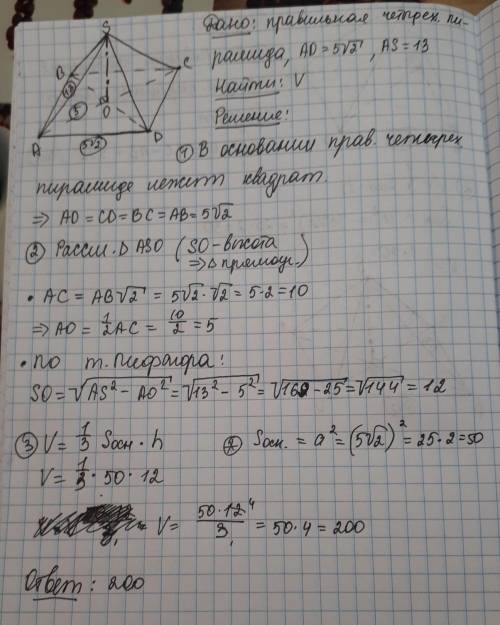 Дано: правильная четырех. пи-
рамида, AD = 5√2, AS = 13
Найти: V
Решение:
S
B
C
13
5
O
A
D
5√2
① В основании прав. четырех
пирамиде лежит квадрат.
⇒ AD = CD = BC = AB = 5√2
② Рассм. Δ ASO (SO - высота
⇒ Δ прямоуг.)
• AC = AB√2 = 5√2 · √2 = 5·2 = 10
⇒ AO = 1/2 AC = 10/2 = 5
• По т. Пифагора:
SO = √AS² - AO² = √13² - 5² = √169 - 25 = √144 = 12
③ V = 1/3 Sосн · h
② Sосн. = a² = (5√2)² = 25·2 = 50
V = 1/3 · 50 · 12
V = 50·12⁴/3₁ = 50·4 = 200
Ответ: 200